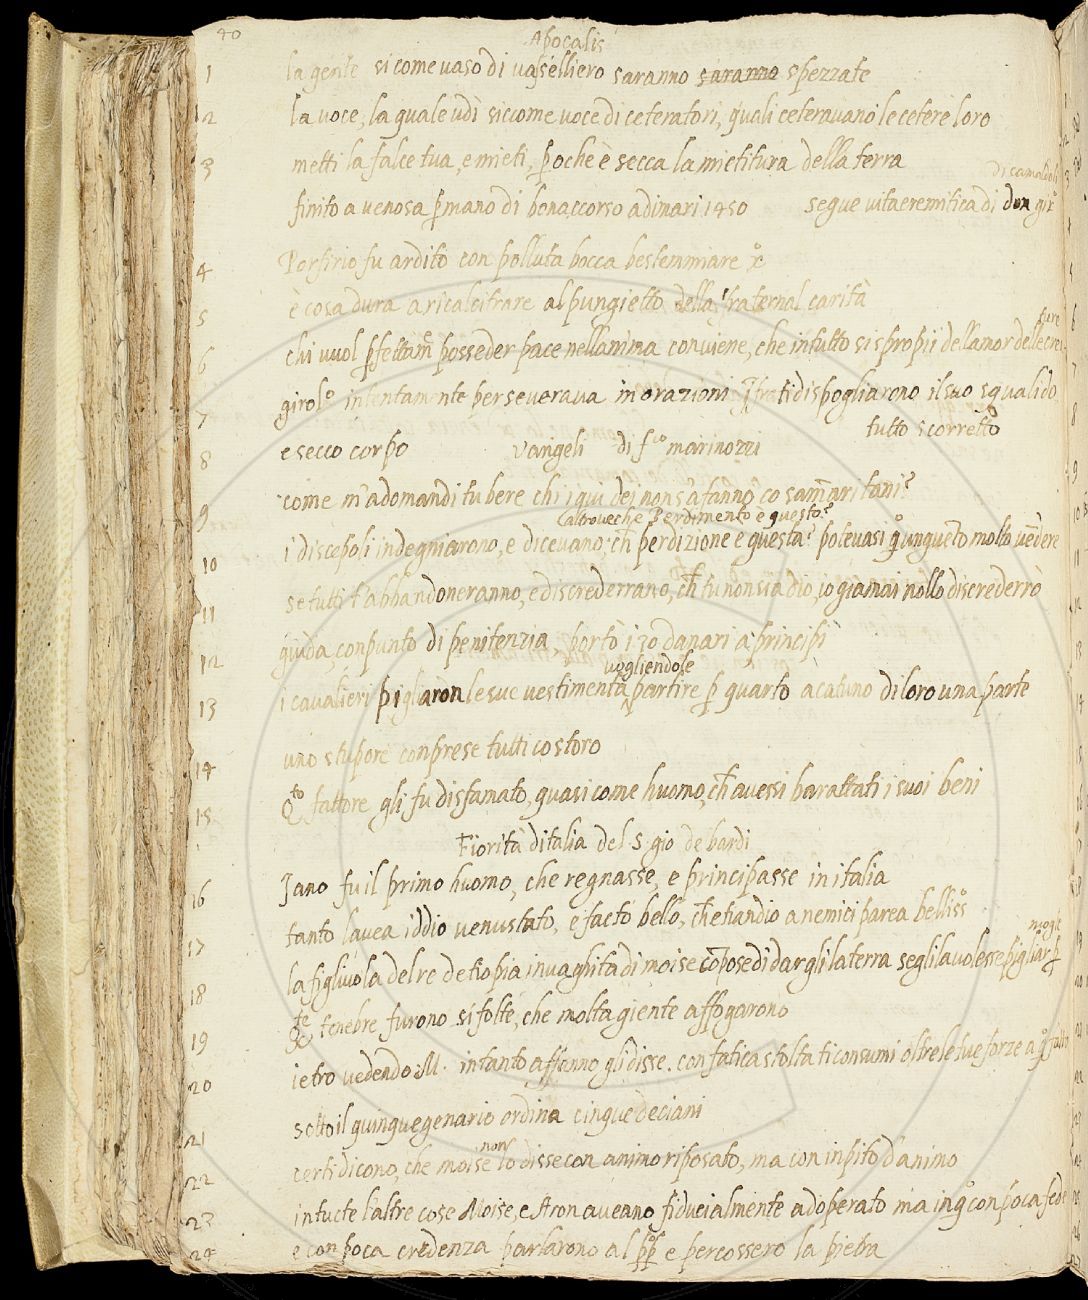 40
Apocalis
1 la gente si come vaso di vaselliero saranno saranno spezzate
2 la voce, la quale udì siccome voce di ceteratori, quali ceteravano le cetere loro
3 metti la falce tua, e mieti, poche è secca la mietitura della terra
di camaldoli
finito a venosa p mano di bonaccorso adimari 1450 segue vita eremitica di don giro
4 Porfirio fu ardito con polluta bocca bestemmiare xo
5 è cosa dura a ricalcitrare al pungietto della fraternal carità
ture
6 chi vuol pfettamte posseder pace nell anima conviene, che in tutto si spropii dell amor delle crea
7 girolo intentamente perseverava in orazioni i frati dispogliarono il suo squalido
tutto scorretto
8 e secco corpo vangeli di fco marinozzi
9 come m adomandi tu bere chi i giudei non s'afanno co sammaritani?
altrove che Perdimento è questo?
10 i discepoli indegniarono, e dicevano; che perdizione e questa? potevasi qo unqueto molto vendere
11 se tutti t'abbandoneranno, e discrederrano, che tu non sia dio, io giamai nollo discrederrò
12 giuda, conpunto di penitenzia, portò i 30 danari a principi
vogliendole
13 i cavalieri pigliaron le sue vestimenta partire p quarto a catuno di loro una parte
14 uno stupore conprese tutti costoro
15 Qto fattore gli fu disfamato, quasi come huomo, che avessi barattati i suoi beni
Fiorità d italia del S gio de bardi
16 Jano fu il primo huomo, che regnasse, e principasse in italia
17 tanto l avea iddio venustato, e facto bello, che etiandio a nemici parea belliss.o
moglie
18 la figlivola del re de tiopia invaghita di moise compose di dargli la terra se gli la volesse pigliar p
19 qte tenebre furono sì folte, che molta giente affogarono
20 ietro vedendo M. in tanto affanno gli disse. con fatica stolta ti consumi oltre le tue forze a qo
21 sotto il quinquegenario ordina cinque deciani
non
22 certi dicono, che moise lo disse con animo riposato, ma con inpito d'animo
23 in tucte l'altre cose Moise, e Aron aveano fiducialmente adoperato ma in qo con poca fede
24 e con poca credenza parlarono al ppo e percossero la pietra